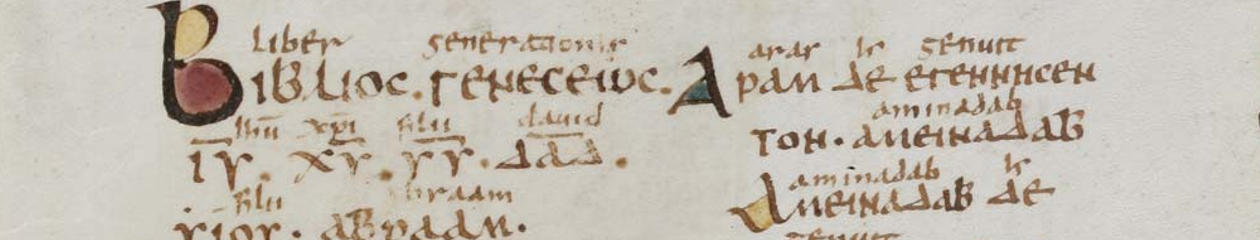 liber generationis
ΒΙΒΛΙΟC · ΓΕΝΕCΕΙΩC ·
ihū xp̄i filii dauid
Ι̅Υ̅ · Χ̅Υ̅ · Υ̅Υ̅ · Δ̅Α̅Δ̅ ·
filii abraam
ΥΙΟΥ · ΑΒΡΑΑΜ ·
aras genuit
ΑΡΑΜ ΔΕ ΕΓΕΝΝΗCΕΝ
aminadab
ΤΟΝ · ΑΜΕΙΝΑΔΑΒ
aminadab
ΑΜΕΙΝΑΔΑΒ ΔΕ
genuit